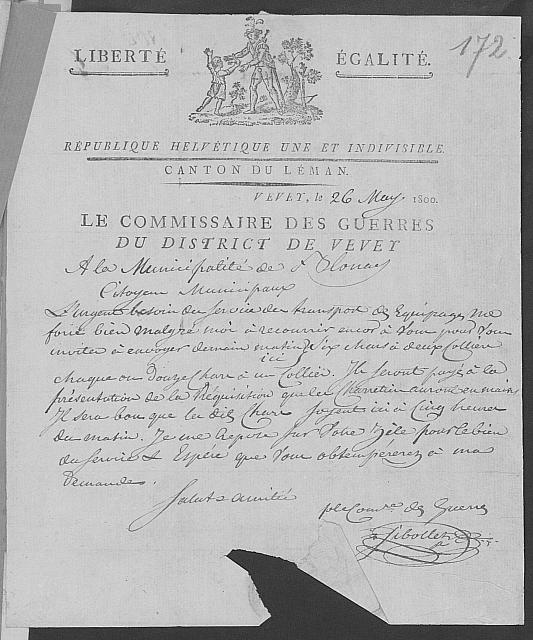 172
LIBERTÉ ÉGALITÉ.
RÉPUBLIQUE HELVÉTIQUE UNE ET INDIVISIBLE.
CANTON DU LÉMAN.
VEVEY, le 26 May 1800.
LE COMMISSAIRE DES GUERRES
DU DISTRICT DE VEVEY
A la Municipalité de
Citoyens Municipaux
L'urgent besoin du service des transport des Equipages me
force bien malgré moi à recourir encor à Vous pour Vous
inviter à envoyer demain matin six chars à deux Collier
ici
chaque ou Douze Chars à un Collier. Ils seront payé à la
présentation de la Réquisition que les Charretier auront en main
Il sera bon que les dits Chars soyent ici à Cinq heures
du matin. Je me Repose sur Votre Zèle pour le bien
du service & Espère que Vous obtempererez à ma
demande.
Salut & amitié
ple Comre des Guerres